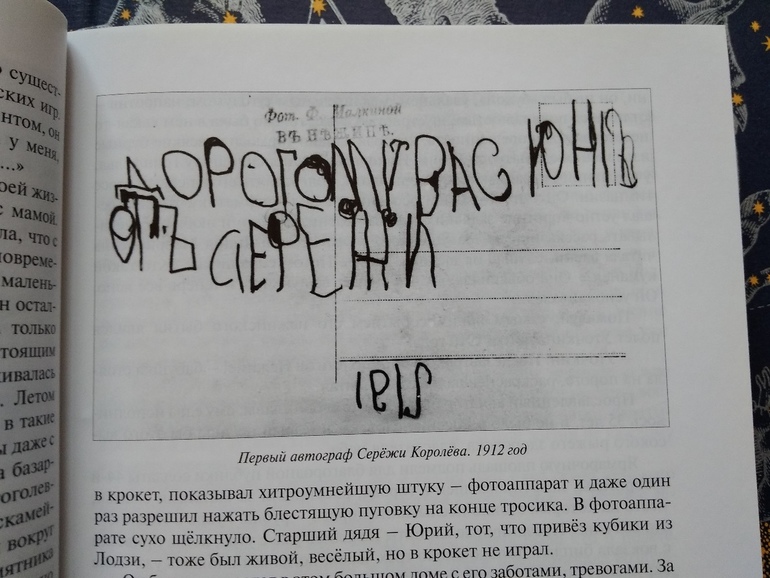 о сущест-
ских игр.
нтом, он
у меня,
...»
оей жиз-
с мамой.
ла, что с
овреме-
малень-
н остал-
только
стоящим
живалась
. Летом
в такие
ы даже с
а базар-
оголев-
скамей-
вокруг
мятника
Фот. Ф. Малкиной
ВЪ НѢЖИНѢ.
ДОРОГОМУ ВАСЮНѢ
ОТЪ СЕРЕЖИ
Первый автограф Серёжи Королёва. 1912 год
в крокет, показывал хитроумнейшую штуку – фотоаппарат и даже один
раз разрешил нажать блестящую пуговку на конце тросика. В фотоаппа-
рате сухо щёлкнуло. Старший дядя – Юрий, тот, что привёз кубики из
Лодзи, – тоже был живой, весёлый, но в крокет не играл.
в этом большом доме с его заботами, тревогами. За